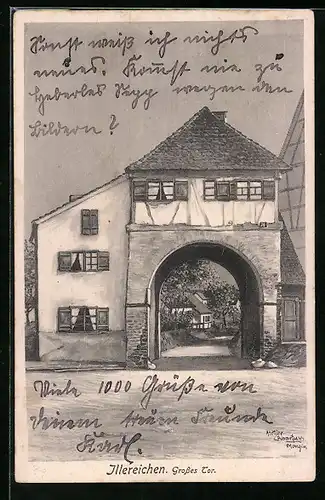 Sonst weiß ich nichts
neues. Kom̅st nie zu
Hederles Sepp wegen den
Bildern?
Viele 1000 Grüße von
deinem treuen Freunde
Karl.
Illereichen. Großes Tor.